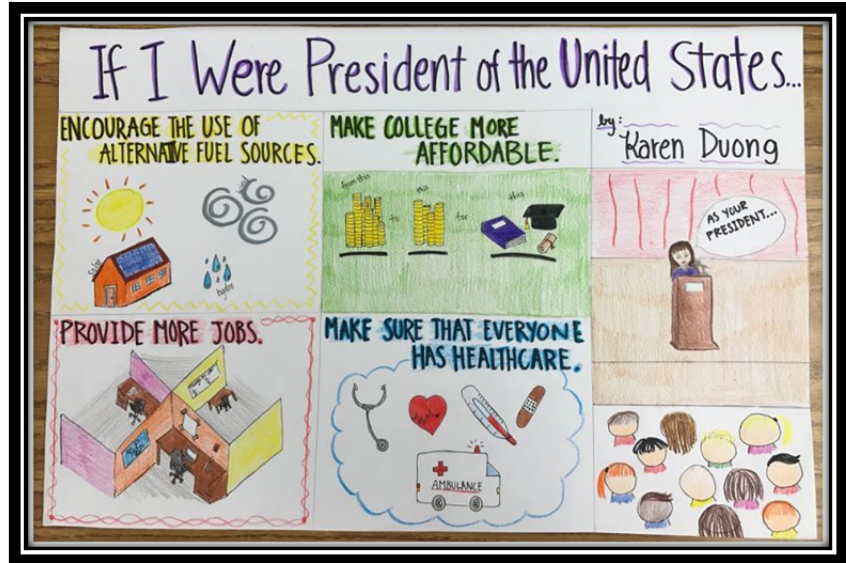 If I Were President of the United States...
ENCOURAGE THE USE OF
ALTERNATIVE FUEL SOURCES.
wind
solar
hydro
MAKE COLLEGE MORE
AFFORDABLE.
from this
to
this
for
this
by:
Karen Duong
AS YOUR
PRESIDENT...
PROVIDE MORE JOBS.
MAKE SURE THAT EVERYONE
HAS HEALTHCARE.
AMBULANCE